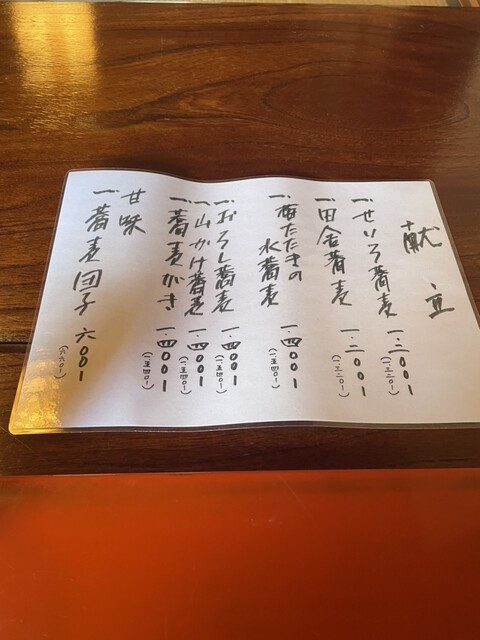 献立
一、せいろ蕎麦 一.二〇〇ー
(一.三二〇ー)
一、田舎蕎麦 一.二〇〇ー
(一.三二〇ー)
一、梅たたきの
水蕎麦 一.四〇〇ー
(一.五四〇ー)
一、おろし蕎麦 一.四〇〇ー
(一.五四〇ー)
一、山かけ蕎麦 一.四〇〇ー
(一.五四〇ー)
一、蕎麦がき 一.四〇〇ー
(一.五四〇ー)
甘味
一、蕎麦団子 六〇〇ー
(六六〇ー)